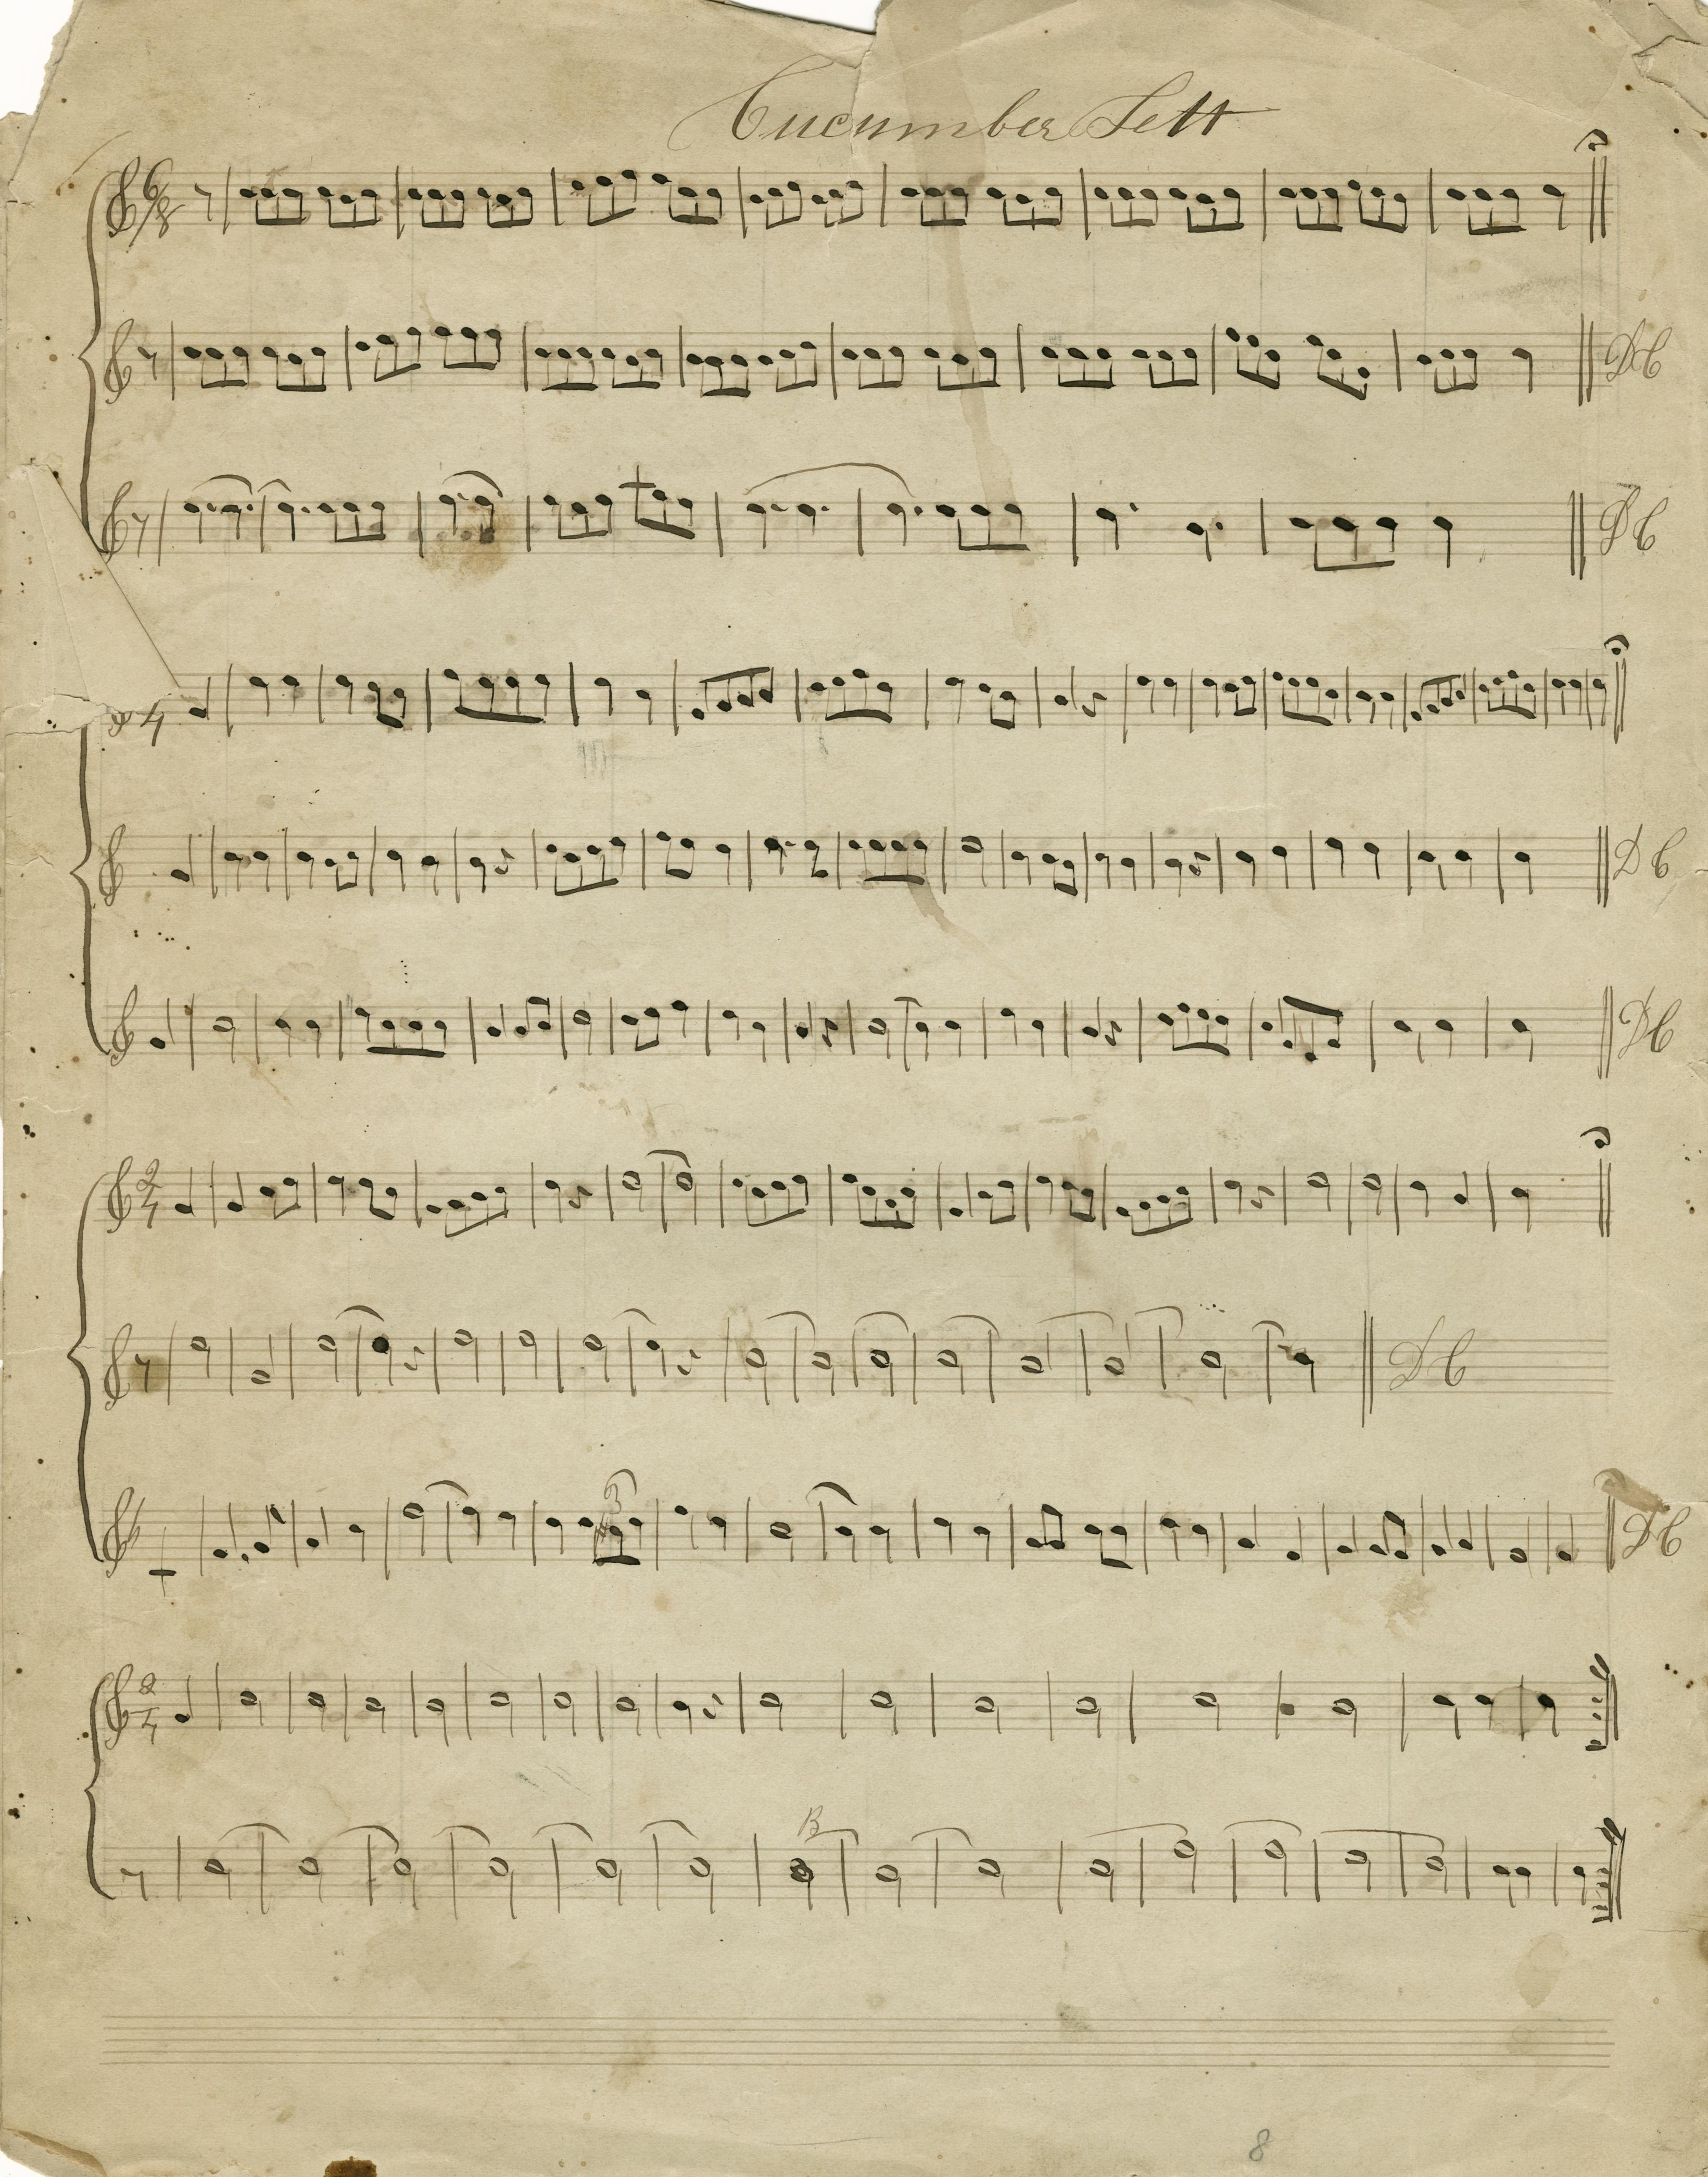 Cucumber Sett
6/8
DC
DC
DC
DC
2/4
DC
3
DC
2/4
B
8